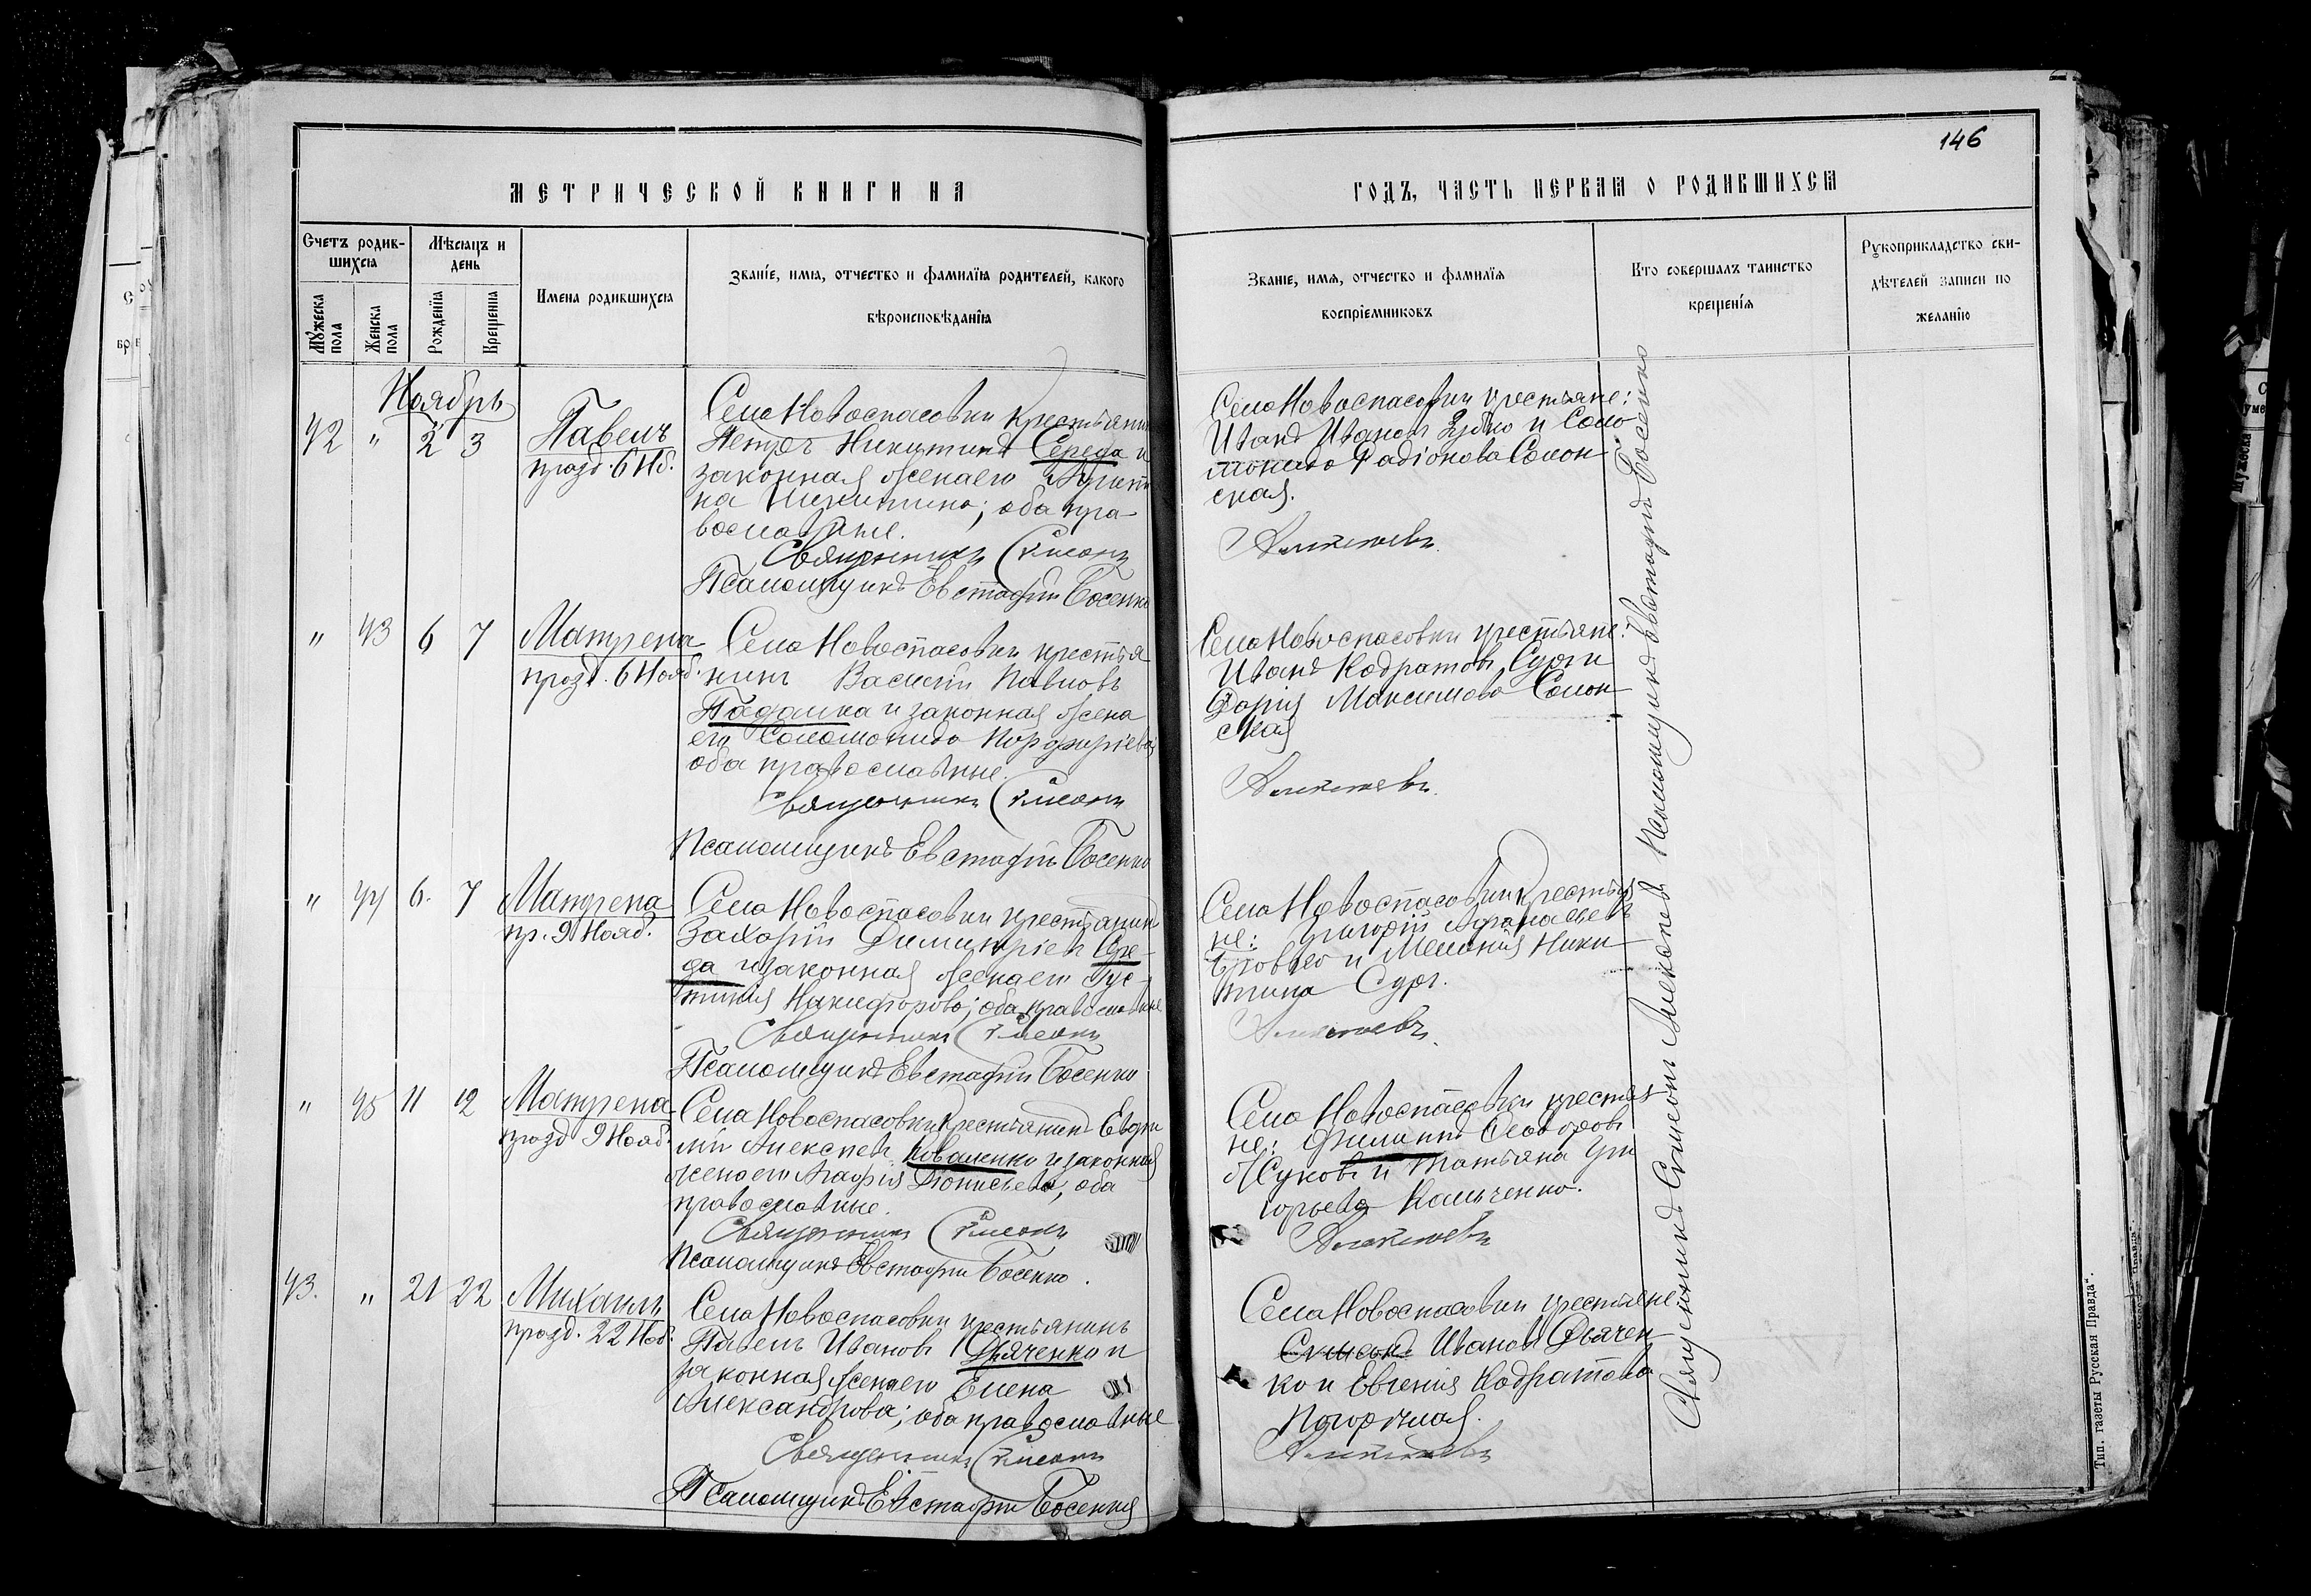 146
МЕТРИЧЕСКОЙ КНИГИ НА
ГОДЪ, ЧАСТЬ ПЕРВАЯ О РОДИВШИХСЯ
Счетъ родив-
шихся
Мужеска пола
Женска пола
Мѣсяцъ и
день
Рожденія
Крещенія
Имена родившихся
Званіе, имя, отчество и фамилія родителей, какого
вѣроисповѣданія
Званіе, имя, отчество и фамилія
воспріемниковъ
Кто совершалъ таинство
крещенія
Рукоприкладство сви-
дѣтелей записи по
желанію
Ноябрь
42 " 2 3
Павелъ
празд. 6 Нб.
Села Новоспасовки крестьянинъ
Петръ Никитинъ Середа и
законная жена его
на Никитина; оба пра-
вославные.
Священникъ Симеонъ
Псаломщикъ Евстафій Босенко
Села Новоспасовки крестьяне:
Иванъ Ивановъ Зубко и Соло-
монида Радіонова Солон-
ская.
Алексѣевъ
" 43 6 7
Матрена
празд. 6 Нояб.
Села Новоспасовки крестья
нинъ Василій Павловъ
Падалка и законная жена
его Соломонида Порфиріева;
оба православные.
Священникъ Симеонъ
Псаломщикъ Евстафій Босенко
Села Новоспасовки крестьяне:
Иванъ Кодратовъ и
Дарія Максимова Солон-
ская
Алексѣевъ
" 44 6. 7
Матрена
пр. 9 Нояб.
Села Новоспасовки крестьянинъ
Захарій Димитріевъ Сере-
да и законная жена его Іус-
тинія Никифорова; оба православные
Священникъ Симеонъ
Псаломщикъ Евстафій Босенко
Села Новоспасовки крестья
не: Григорій Афанасьевъ
и Меланія Ники-
тина
Алексѣевъ
" 45 11 12
Матрена
празд 9 Нояб.
Села Новоспасовки крестьянинъ Евфи
мій Алексѣевъ Коваленко и законная
жена его Агафія Діонисьева, оба
православные.
Священникъ Симеонъ
Псаломщикъ Евстафій Босенко.
Села Новоспасовки крестья
не: Филиппъ Ѳеодоровъ
Жуковъ и Татьяна Гри
горьева Кальченко.
Алексѣевъ
43. " 21 22
Михаилъ
празд. 22 Ноб.
Села Новоспасовки крестьянинъ
Павелъ Ивановъ Дьяченко и
законная жена его Елена
Александрова; оба православные
Священникъ Симеонъ
Псаломщикъ Евстафій Босенко
Села Новоспасовки крестьяне
Симеонъ Ивановъ Дьячен-
ко и Евгенія Кодратова
Погорѣлая.
Алексѣевъ
Священникъ Симеонъ Алексѣевъ Псаломщикъ Евстафій Босенко
Тип. газеты „Русская Правда".